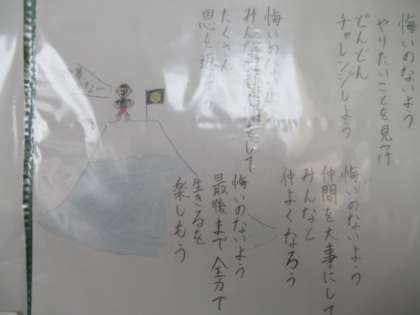 悔いのないよう
やりたいことを見つけ
どんどん
チャレンジしよう
悔いのないよう
仲間を大事にして
みんなと
仲よくなろう
悔いのないよう
みんな
して
たくさん
悔いのないよう
最後まで全力で
生きるを
楽しもう